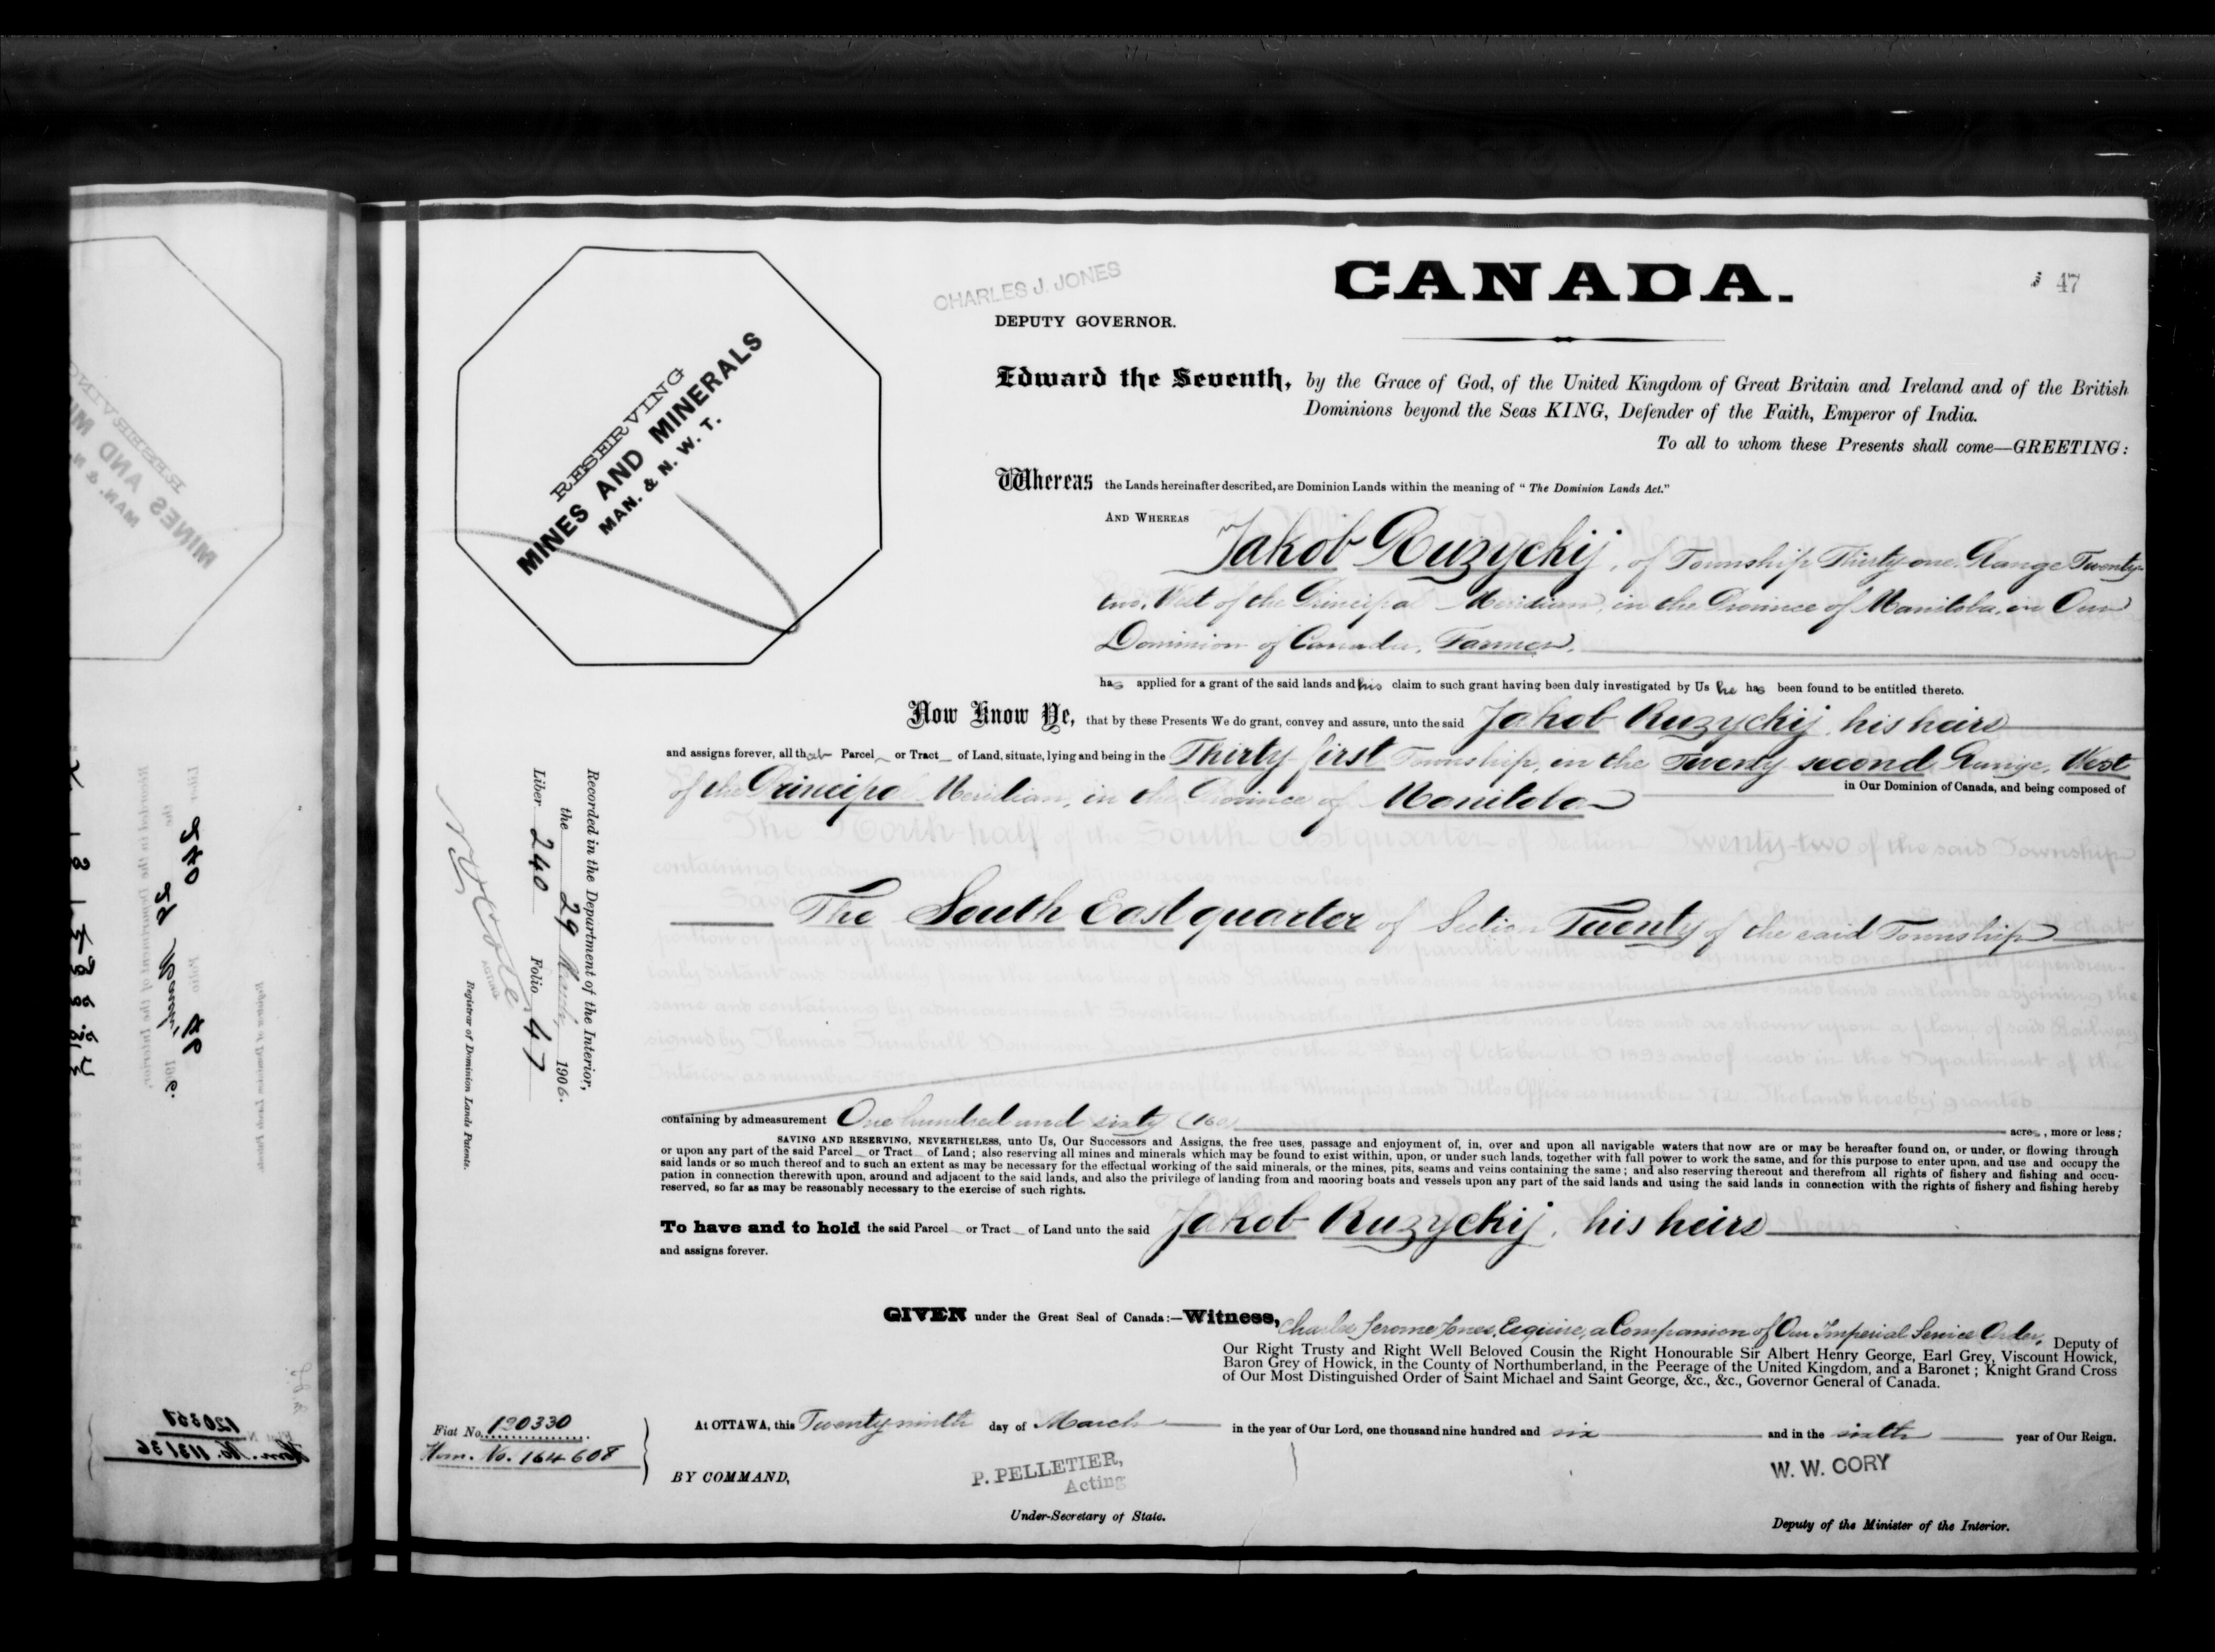 CHARLES J. JONES
DEPUTY GOVERNOR.
CANADA.
47
RESERVING
MINES AND MINERALS
MAN. & N. W. T.
Edward the Seventh, by the Grace of God, of the United Kingdom of Great Britain and Ireland and of the British
Dominions beyond the Seas KING, Defender of the Faith, Emperor of India.
To all to whom these Presents shall come—GREETING:
Whereas the Lands hereinafter described, are Dominion Lands within the meaning of "The Dominion Lands Act."
AND WHEREAS
Jakob Ruzychij, of Township Thirty-one, Range Twenty-
two, West of the Principal Meridian, in the Province of Manitoba, in Our
Dominion of Canada, Farmer,
has applied for a grant of the said lands and his claim to such grant having been duly investigated by Us he has been found to be entitled thereto.
Now Know Ye, that by these Presents We do grant, convey and assure, unto the said Jakob Ruzychij, his heirs
and assigns forever, all that Parcel or Tract of Land, situate, lying and being in the Thirty-first Township, in the Twenty-second Range, West
of the Principal Meridian, in the Province of Manitoba in Our Dominion of Canada, and being composed of
The South East quarter of Section Twenty of the said Township
containing by admeasurement One hundred and sixty (160) acres, more or less;
SAVING AND RESERVING, NEVERTHELESS, unto Us, Our Successors and Assigns, the free uses, passage and enjoyment of, in, over and upon all navigable waters that now are or may be hereafter found on, or under, or flowing through
or upon any part of the said Parcel or Tract of Land; also reserving all mines and minerals which may be found to exist within, upon, or under such lands, together with full power to work the same, and for this purpose to enter upon, and use and occupy the
said lands or so much thereof and to such an extent as may be necessary for the effectual working of the said minerals, or the mines, pits, seams and veins containing the same; and also reserving thereout and therefrom all rights of fishery and fishing and occu-
pation in connection therewith upon, around and adjacent to the said lands, and also the privilege of landing from and mooring boats and vessels upon any part of the said lands and using the said lands in connection with the rights of fishery and fishing hereby
reserved, so far as may be reasonably necessary to the exercise of such rights.
To have and to hold the said Parcel or Tract of Land unto the said Jakob Ruzychij, his heirs
and assigns forever.
GIVEN under the Great Seal of Canada:—Witness, Charles Jerome Jones, Esquire, a Companion of Our Imperial Service Order, Deputy of
Our Right Trusty and Right Well Beloved Cousin the Right Honourable Sir Albert Henry George, Earl Grey, Viscount Howick,
Baron Grey of Howick, in the County of Northumberland, in the Peerage of the United Kingdom, and a Baronet; Knight Grand Cross
of Our Most Distinguished Order of Saint Michael and Saint George, &c., &c., Governor General of Canada.
At OTTAWA, this Twenty-ninth day of March in the year of Our Lord, one thousand nine hundred and six and in the sixth year of Our Reign.
BY COMMAND,
P. PELLETIER,
Acting
Under-Secretary of State.
W. W. CORY
Deputy of the Minister of the Interior.
Fiat No. 130330
Hom. No. 164608
Recorded in the Department of the Interior,
the 29 March, 1906.
Liber 240 Folio 47
ACTING
Registrar of Dominion Lands Patents.